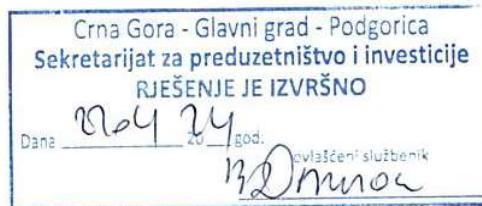 Crna Gora - Glavni grad - Podgorica
Sekretarijat za preduzetništvo i investicije
RJEŠENJE JE IZVRŠNO
Dana 22.04 20 24 god.
ovlašćeni službenik